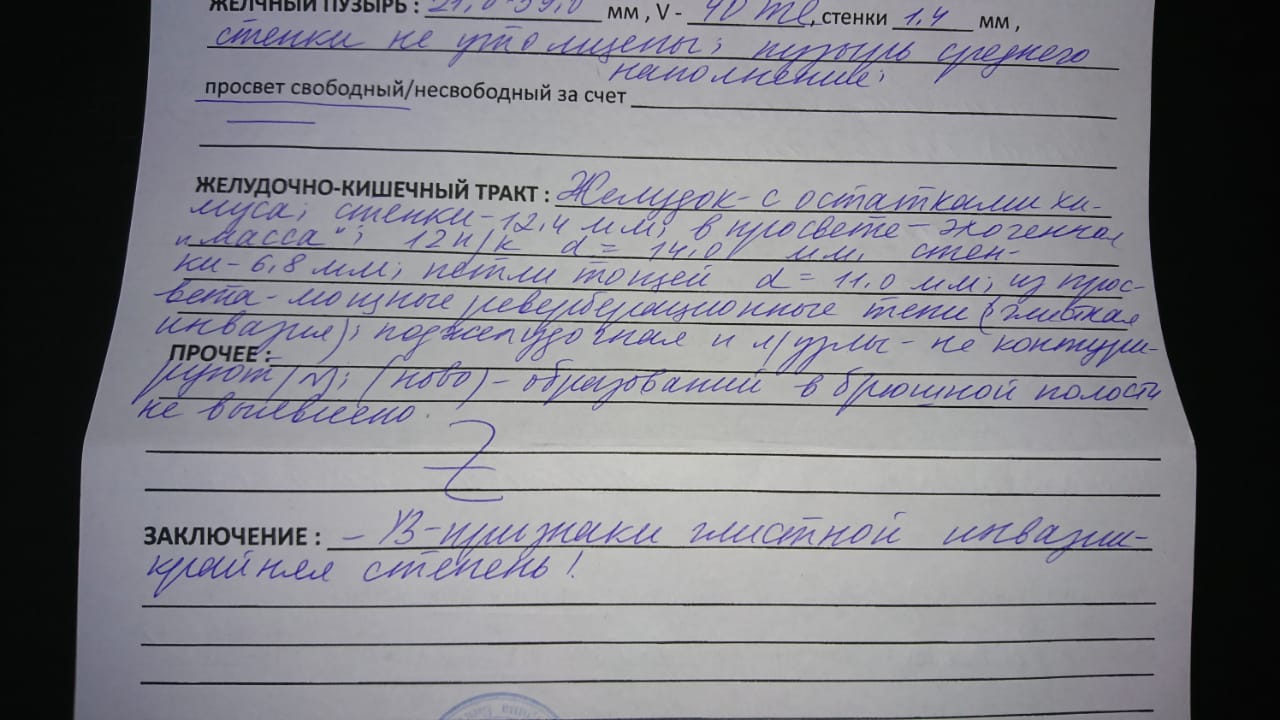 ЖЕЛЧНЫЙ ПУЗЫРЬ : мм , V - 40 ml, стенки 1,4 мм ,
стенки не утолщены; пузырь среднего
наполнения;
просвет свободный/несвободный за счет
ЖЕЛУДОЧНО-КИШЕЧНЫЙ ТРАКТ : Желудок - с остатками хи-
муса; стенки - 12,4 мм; в просвете - эхогенная
"масса"; 12 п/к d = 14,0 мм, стен-
ки - 6,8 мм; петли тощей d = 11,0 мм; из прос-
вета - мощные реверберационные тени (глистная
инвазия); поджелудочная и л/узлы - не контури-
ПРОЧЕЕ :
руют (N); (ново) - образований в брюшной полости
не выявлено.
ЗАКЛЮЧЕНИЕ : - УЗ-признаки глистной инвазии -
крайняя степень!